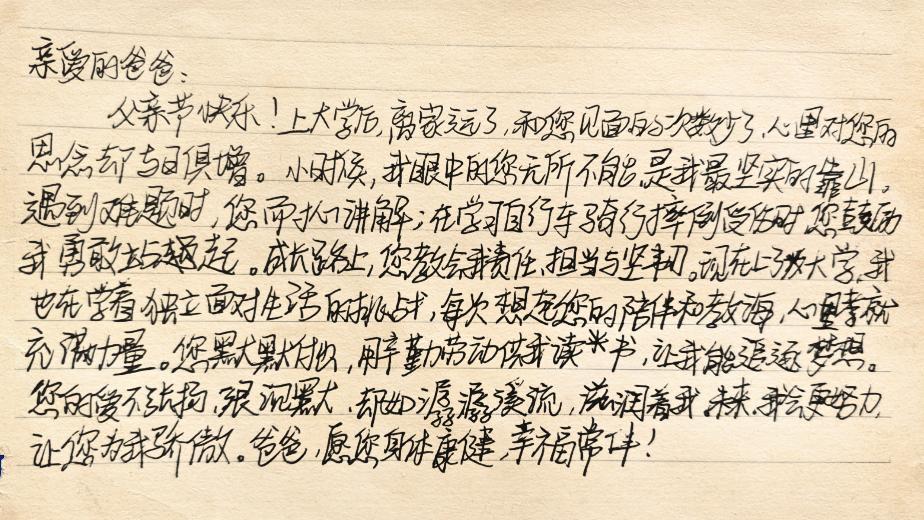 亲爱的爸爸：
父亲节快乐！上大学后，离家远了，和您见面的次数少了，心里对您的
思念却与日俱增。小时候，我眼中的您无所不能，是我最坚实的靠山。
遇到难题时，您耐心讲解；在学习自行车骑行摔倒受伤时，您鼓励
我勇敢站起。成长路上，您教会我责任、担当与坚韧。现在上了大学，我
也在学着独立面对生活的挑战，每次想起您的陪伴和教诲，心里就
充满力量。您默默付出，用辛勤劳动供我读书，让我能追逐梦想。
您的爱不张扬，很沉默，却如潺潺溪流，滋润着我。未来，我会更努力，
让您为我骄傲。爸爸，愿您身体康健，幸福常伴！